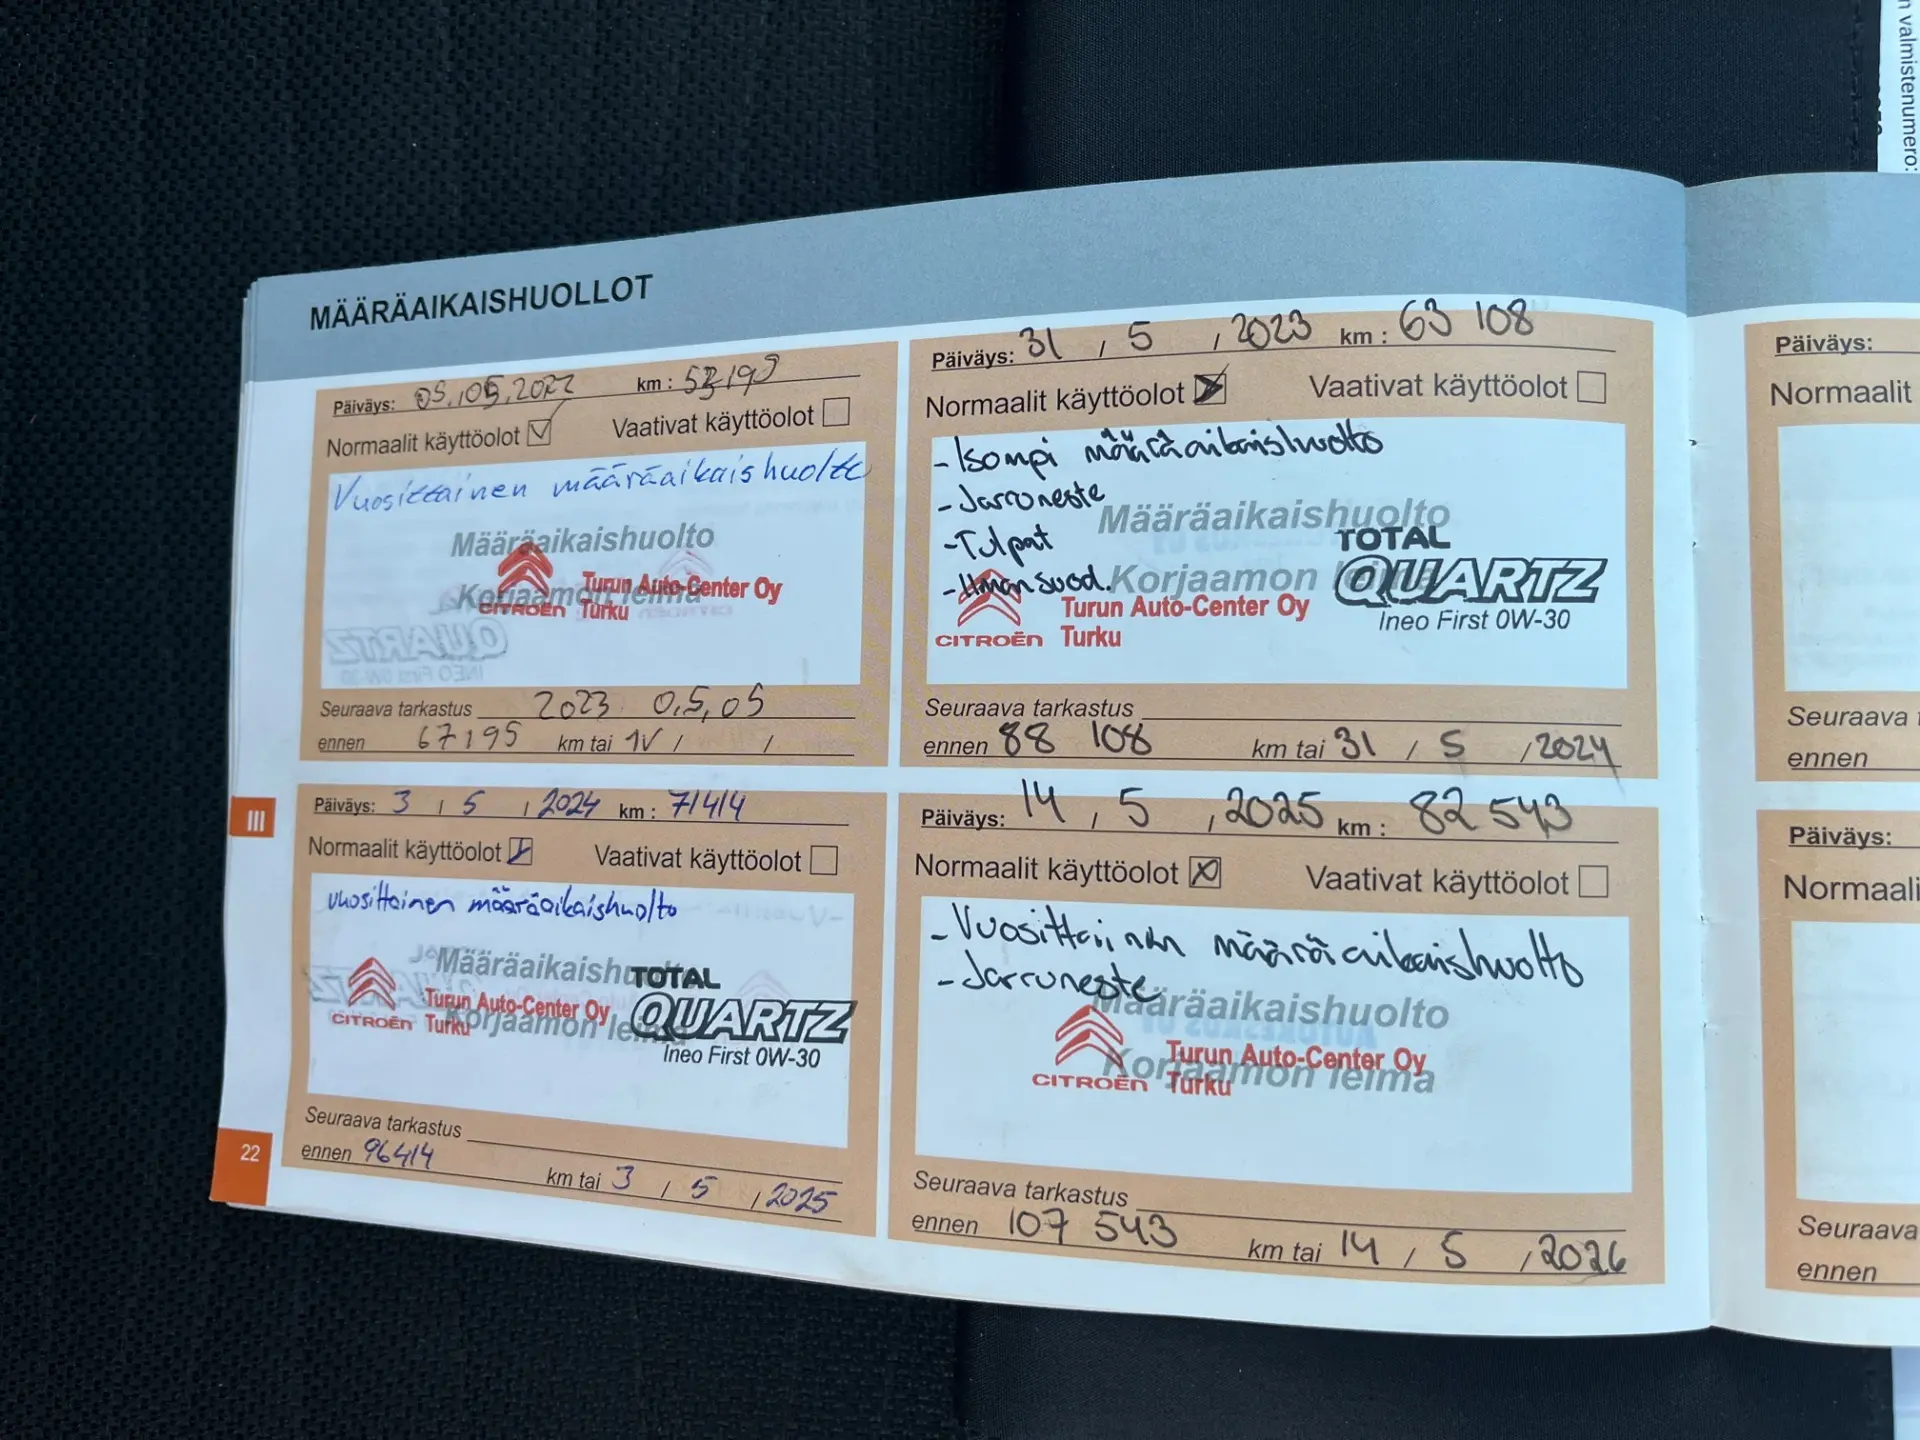 n valmistenumero:
MÄÄRÄAIKAISHUOLLOT
Päiväys: 05.05.2022 km :
Normaalit käyttöolot Vaativat käyttöolot
Vuosittainen määräaikaishuolto
Määräaikaishuolto
Korjaamon leima
CITROËN Turun Auto-Center Oy
Turku
QUARTZ
INEO First 0W-30
Seuraava tarkastus 2023 05,05
ennen 67195 km tai 1V / /
Päiväys: 31 / 5 / 2023 km : 63 108
Normaalit käyttöolot Vaativat käyttöolot
- Isompi määräaikaishuolto
- Jarruneste
- Tulpat
- Ilmansuod.
Määräaikaishuolto
Korjaamon leima
TOTAL
QUARTZ
Ineo First 0W-30
CITROËN Turun Auto-Center Oy
Turku
Seuraava tarkastus
ennen 88 108 km tai 31 / 5 / 2024
Päiväys: 3 / 5 / 2024 km : 71414
Normaalit käyttöolot Vaativat käyttöolot
vuosittainen määräaikaishuolto
Määräaikaishuolto
Korjaamon leima
CITROËN Turun Auto-Center Oy
Turku
TOTAL
QUARTZ
Ineo First 0W-30
Seuraava tarkastus
ennen 96414 km tai 3 / 5 / 2025
Päiväys: 14 / 5 / 2025 km : 82 543
Normaalit käyttöolot Vaativat käyttöolot
- Vuosittainen määräaikaishuolto
- Jarruneste
Määräaikaishuolto
Korjaamon leima
CITROËN Turun Auto-Center Oy
Turku
Seuraava tarkastus
ennen 107 543 km tai 14 / 5 / 2026
III
22
Päiväys:
Normaalit
Seuraava
ennen
Päiväys:
Normaali
Seuraava
ennen